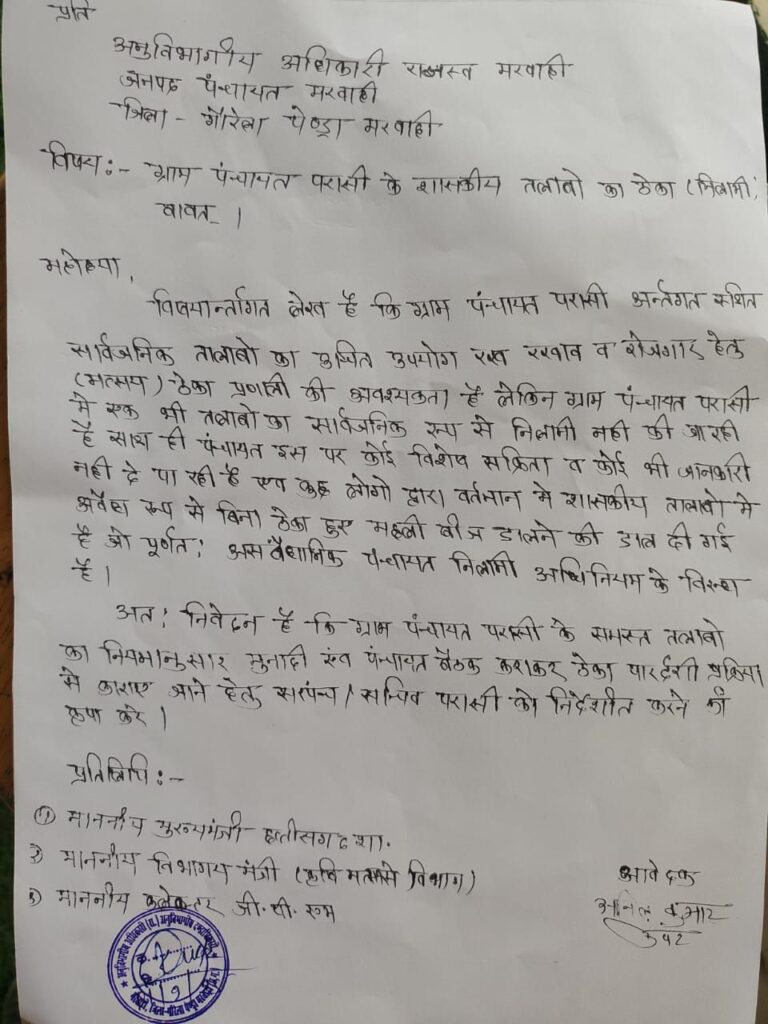 प्रति
अनुविभागीय अधिकारी राजस्व मरवाही
जनपद पंचायत मरवाही
जिला - गौरेला पेण्ड्रा मरवाही
विषय:- ग्राम पंचायत परासी के शासकीय तलाबो का ठेका (निलामी)
बावत् ।
महोदया,
विषयार्न्तागत लेख है कि ग्राम पंचायत परासी अर्न्तगत स्थित
सार्वजनिक तालाबो का उचित उपयोग रख रखाव व रोजगार हेतु
(मत्सय) ठेका प्रणाली की अवश्यकता है लेकिन ग्राम पंचायत परासी
मे एक भी तलाबो का सार्वजनिक रूप से निलामी नही की जा रही
है साथ ही पंचायत इस पर कोई विशेष सक्रिता व कोई भी जानकारी
नही दे पा रही है एव कुछ लोगो द्वारा वर्तमान मे शासकीय तालाबो मे
अवैध रूप से बिना ठेका हुए मछली बीज डालने की डाल दी गई
है जो पूर्णत: असवैधानिक पंचायत निलामी अधिनियम के विरुध
है ।
अत: निवेदन है कि ग्राम पंचायत परासी के समस्त तलाबो
का नियमानुसार मुनादी एंव पंचायत बैठक कराकर ठेका पारर्दशी प्रक्रिया
से काराए जाने हेतु सरपंच / सचिव परासी को निर्देशीत करने की
कृपा करे ।
प्रतिलिपि:-
① माननीय मुख्यमंत्री छत्तीसगढ शा.
② माननीय विभागय मंत्री (कृषि मत्सय विभाग)
③ माननीय कलेक्टर जी.पी. एम
आवेदक
अनिल कुमार